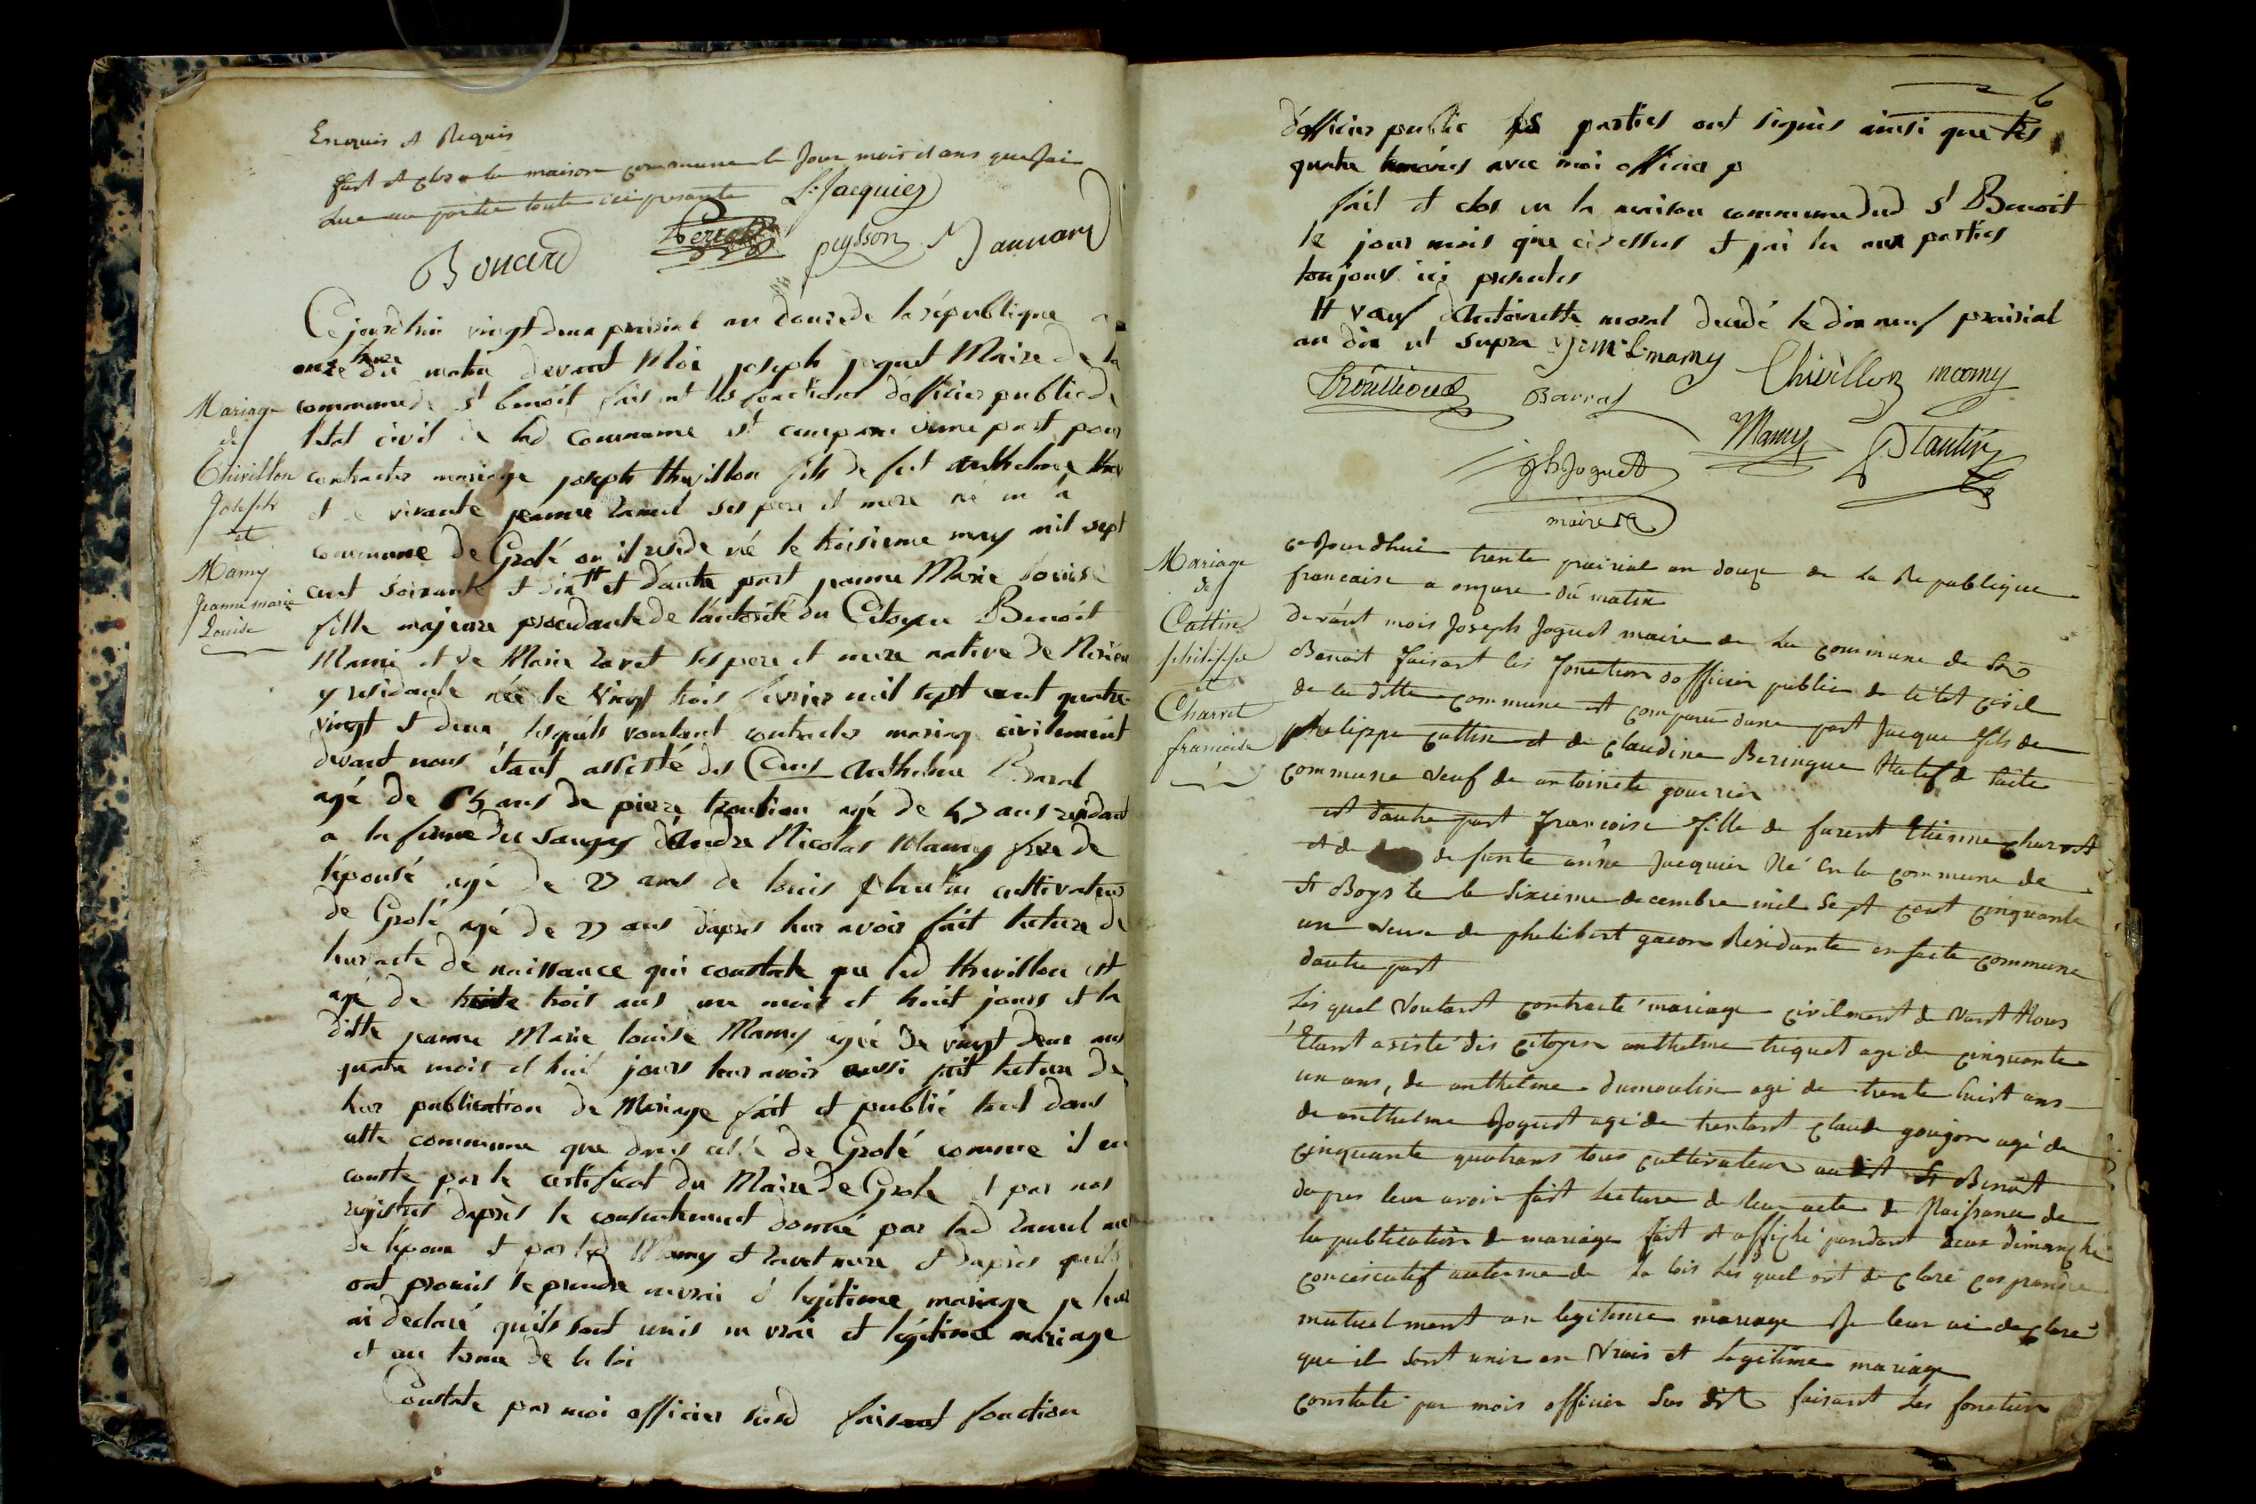 Enquis et Requis
fait et clos a la maison commune le Jour mois et ans que Jai
Lue au partie toute ici presante
L. Jacquier
Bonard
peysson
Mannard
Ce jourdhui vingt deux prairial an douze de la république a
onze heure du matin devant Moi joseph joguet Maire de la
commune de st benoit faisant les fonctions dofficier public de
letat civil de lad Commune st comparu dune part pour
contracter mariage joseph thivillon fils de feu anthelme
et de vivante jeanne ses pere et mere né en la
commune de Grolé ou il reside né le troisieme may mil sept
cent soixante et dix tt et dautre part jeanne Marie Louise
fille majeure procedante de lautorité du Citoyen Benoit
Mami et de Marie ses pere et mere native de
y residante née le vingt trois fevrier mil sept cent quatre
vingt et deux lesquels voulant contracter mariage civilement
devant nous étant assisté des Cens Anthelme
agé de ans de pierre agé de 47 ans residant
a la ferme du d'Andre Nicolas Mamy frere de
lépousé agé de 27 ans de louis plantin cultivateur
de Grolé agé de 27 ans daprès leur avoir fait lecture de
leur acte de naissance qui constate que led thivillon est
agé de trente trois ans un mois et huit jours et la
ditte jeanne Marie louise Mamy agée de vingt deux ans
quatre mois et huit jours leur avoir aussi fait lecture de
leur publication de Mariage fait et publié tant dans
cette commune que dans celle de Grolé comme il en
conste par le certificat du Maire de Grole et par nos
registres daprès le consentement donné par lad mere
de lepoux et par led Mamy et mere et daprès quils
ont promis se prendre en vrai et légitime mariage je leur
ai declaré quils sont unis en vrai et légitime mariage
et au terme de la loi
Constate par moi officier susd faisant fonction
Mariage
de
Thivillon
Joseph
et
Mamy
Jeanne marie
Louise
6
d'officier public les parties ont signés ainsi que les
quatre temoins avec moi officier p
fait et clos en la maison commune dud st Benoit
le jour mois que cidessus et jai lu aux parties
toujours ici presentes
tt veuf dantoinette morel decedé le dix neuf prairial
an dix ut supra j: m: L: mamy
Thivillon mamy
Trouilloud
Barral
Mamy
Plantin
jh Joguet
maire
Mariage
de
Cattin
philippe
et
Charvet
francoise
ce Jourdhui trente prairial an douze de la Republique
francaise a onzure du matin
devant mois Joseph Joguet maire de la commune de St
Benoit faisant les fonction dofficier public de letet civil
de la ditte commune et comparu dune part Jacque fils de
phelippe cattin et de claudine Beringue Natif de laite
commune veuf de antoinete gourrier
et dautre part francoise fille de furent Etienne charvet
et de de funte anne Jacquier Né en la commune de
St Boys le le sixieme decembre mil sept cent cinquante
un veuve de phelibert gacon Residante en fecte commune
dautre part
Les quel voulant contracté mariage civilment de vant Nous
Etant asisté dis citoyen anthelme triquet age de cinquante
un ans, de anthelme dumoulin agé de trente huit ans
de anthelme Joguet agé de trentant claude goujon agé de
cinquante quatrans tous cultivateur audit St Benoit
dapres leur avoir fait lecture de leur acte de Naissance de
la publication de mariage fait et affiché pendant deux dimanche
concecutif auterme de la lois Les quel ont de claré ces prandre
mutuelment an legitime mariage Je leur ai de claré
que il sont unis en vrais et Legitime mariage
constaté par mois officier Sus dit faisant Les fonction